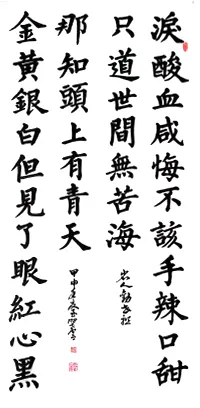 淚酸血咸悔不該手辣口甜
只道世間無苦海
金黃銀白但見了眼紅心黑
那知頭上有青天
甲申年夏